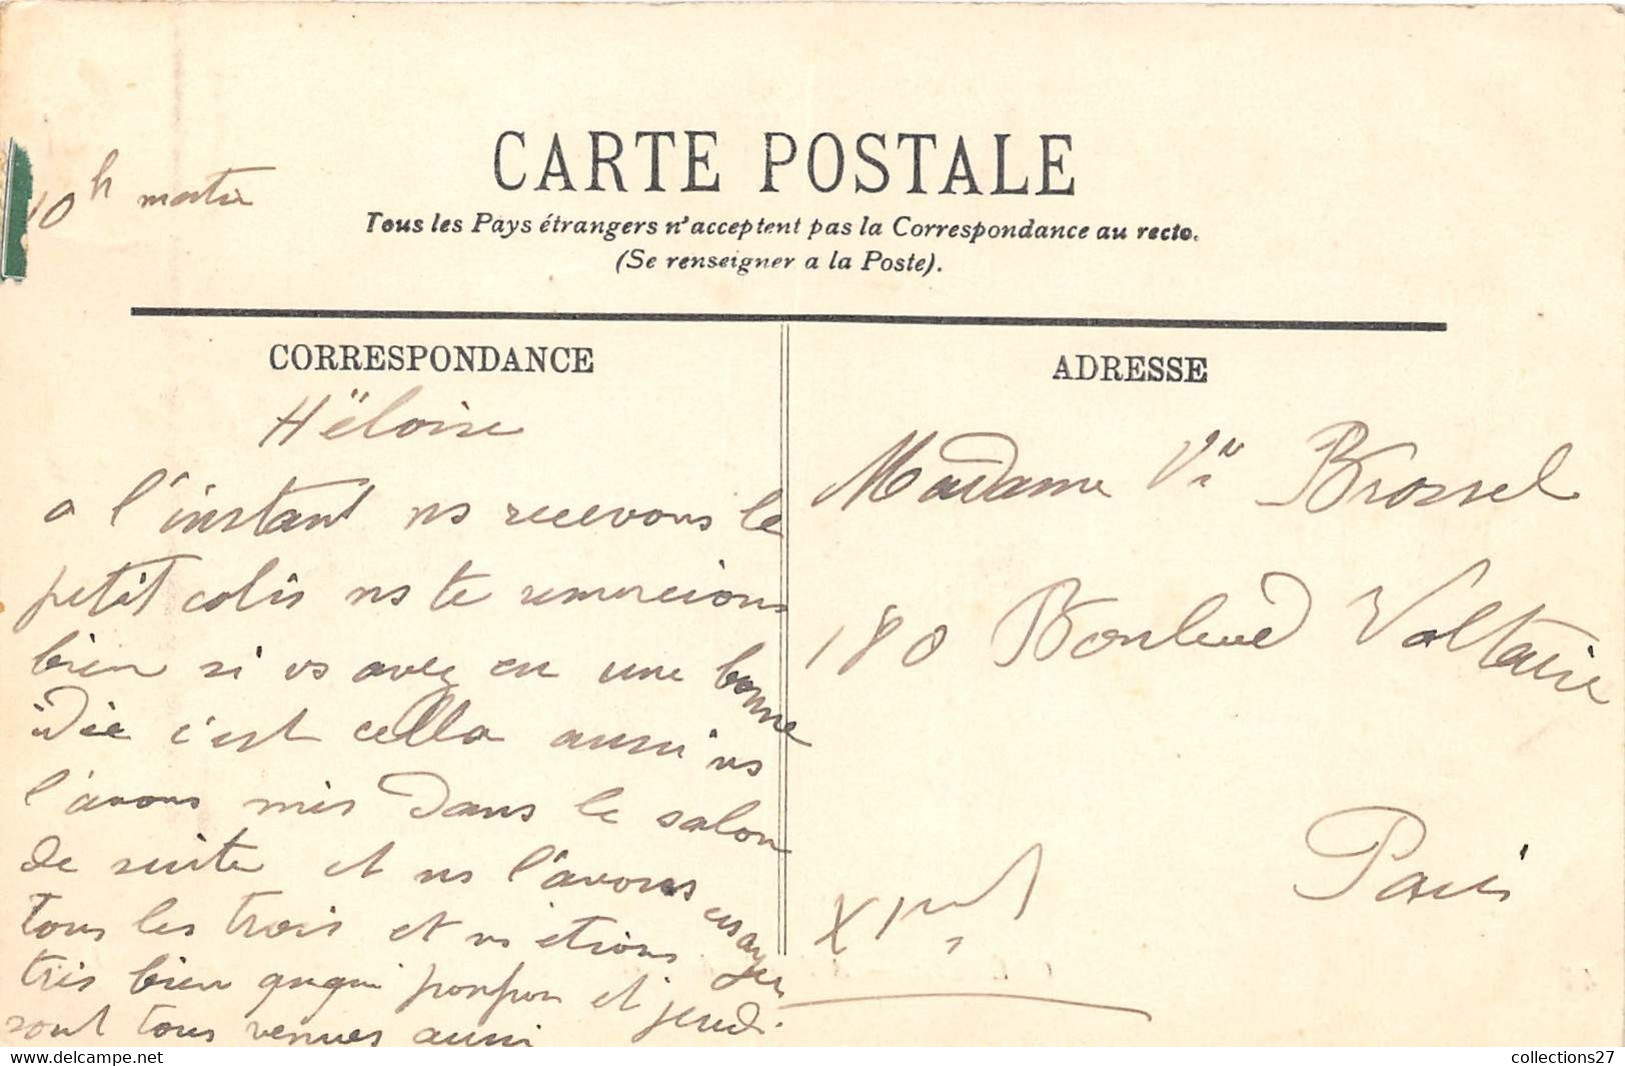 10h matin
CARTE POSTALE
Tous les Pays étrangers n'acceptent pas la Correspondance au recto.
(Se renseigner a la Poste).
CORRESPONDANCE
Hëloise
a l'instant ns recevons le
petit colis ns te remercions
bien si vs avez eu une bonne
idée c'est cella aussi ns
l'avons mis dans le salon
de suite et ns l'avons essayer
tous les trois et ns étions
très bien ququi ponpon et jeudi
sont tous venues aussi
ADRESSE
Madame Ve Brossel
180 Boulevd Voltaire
Paris
XI
collections27